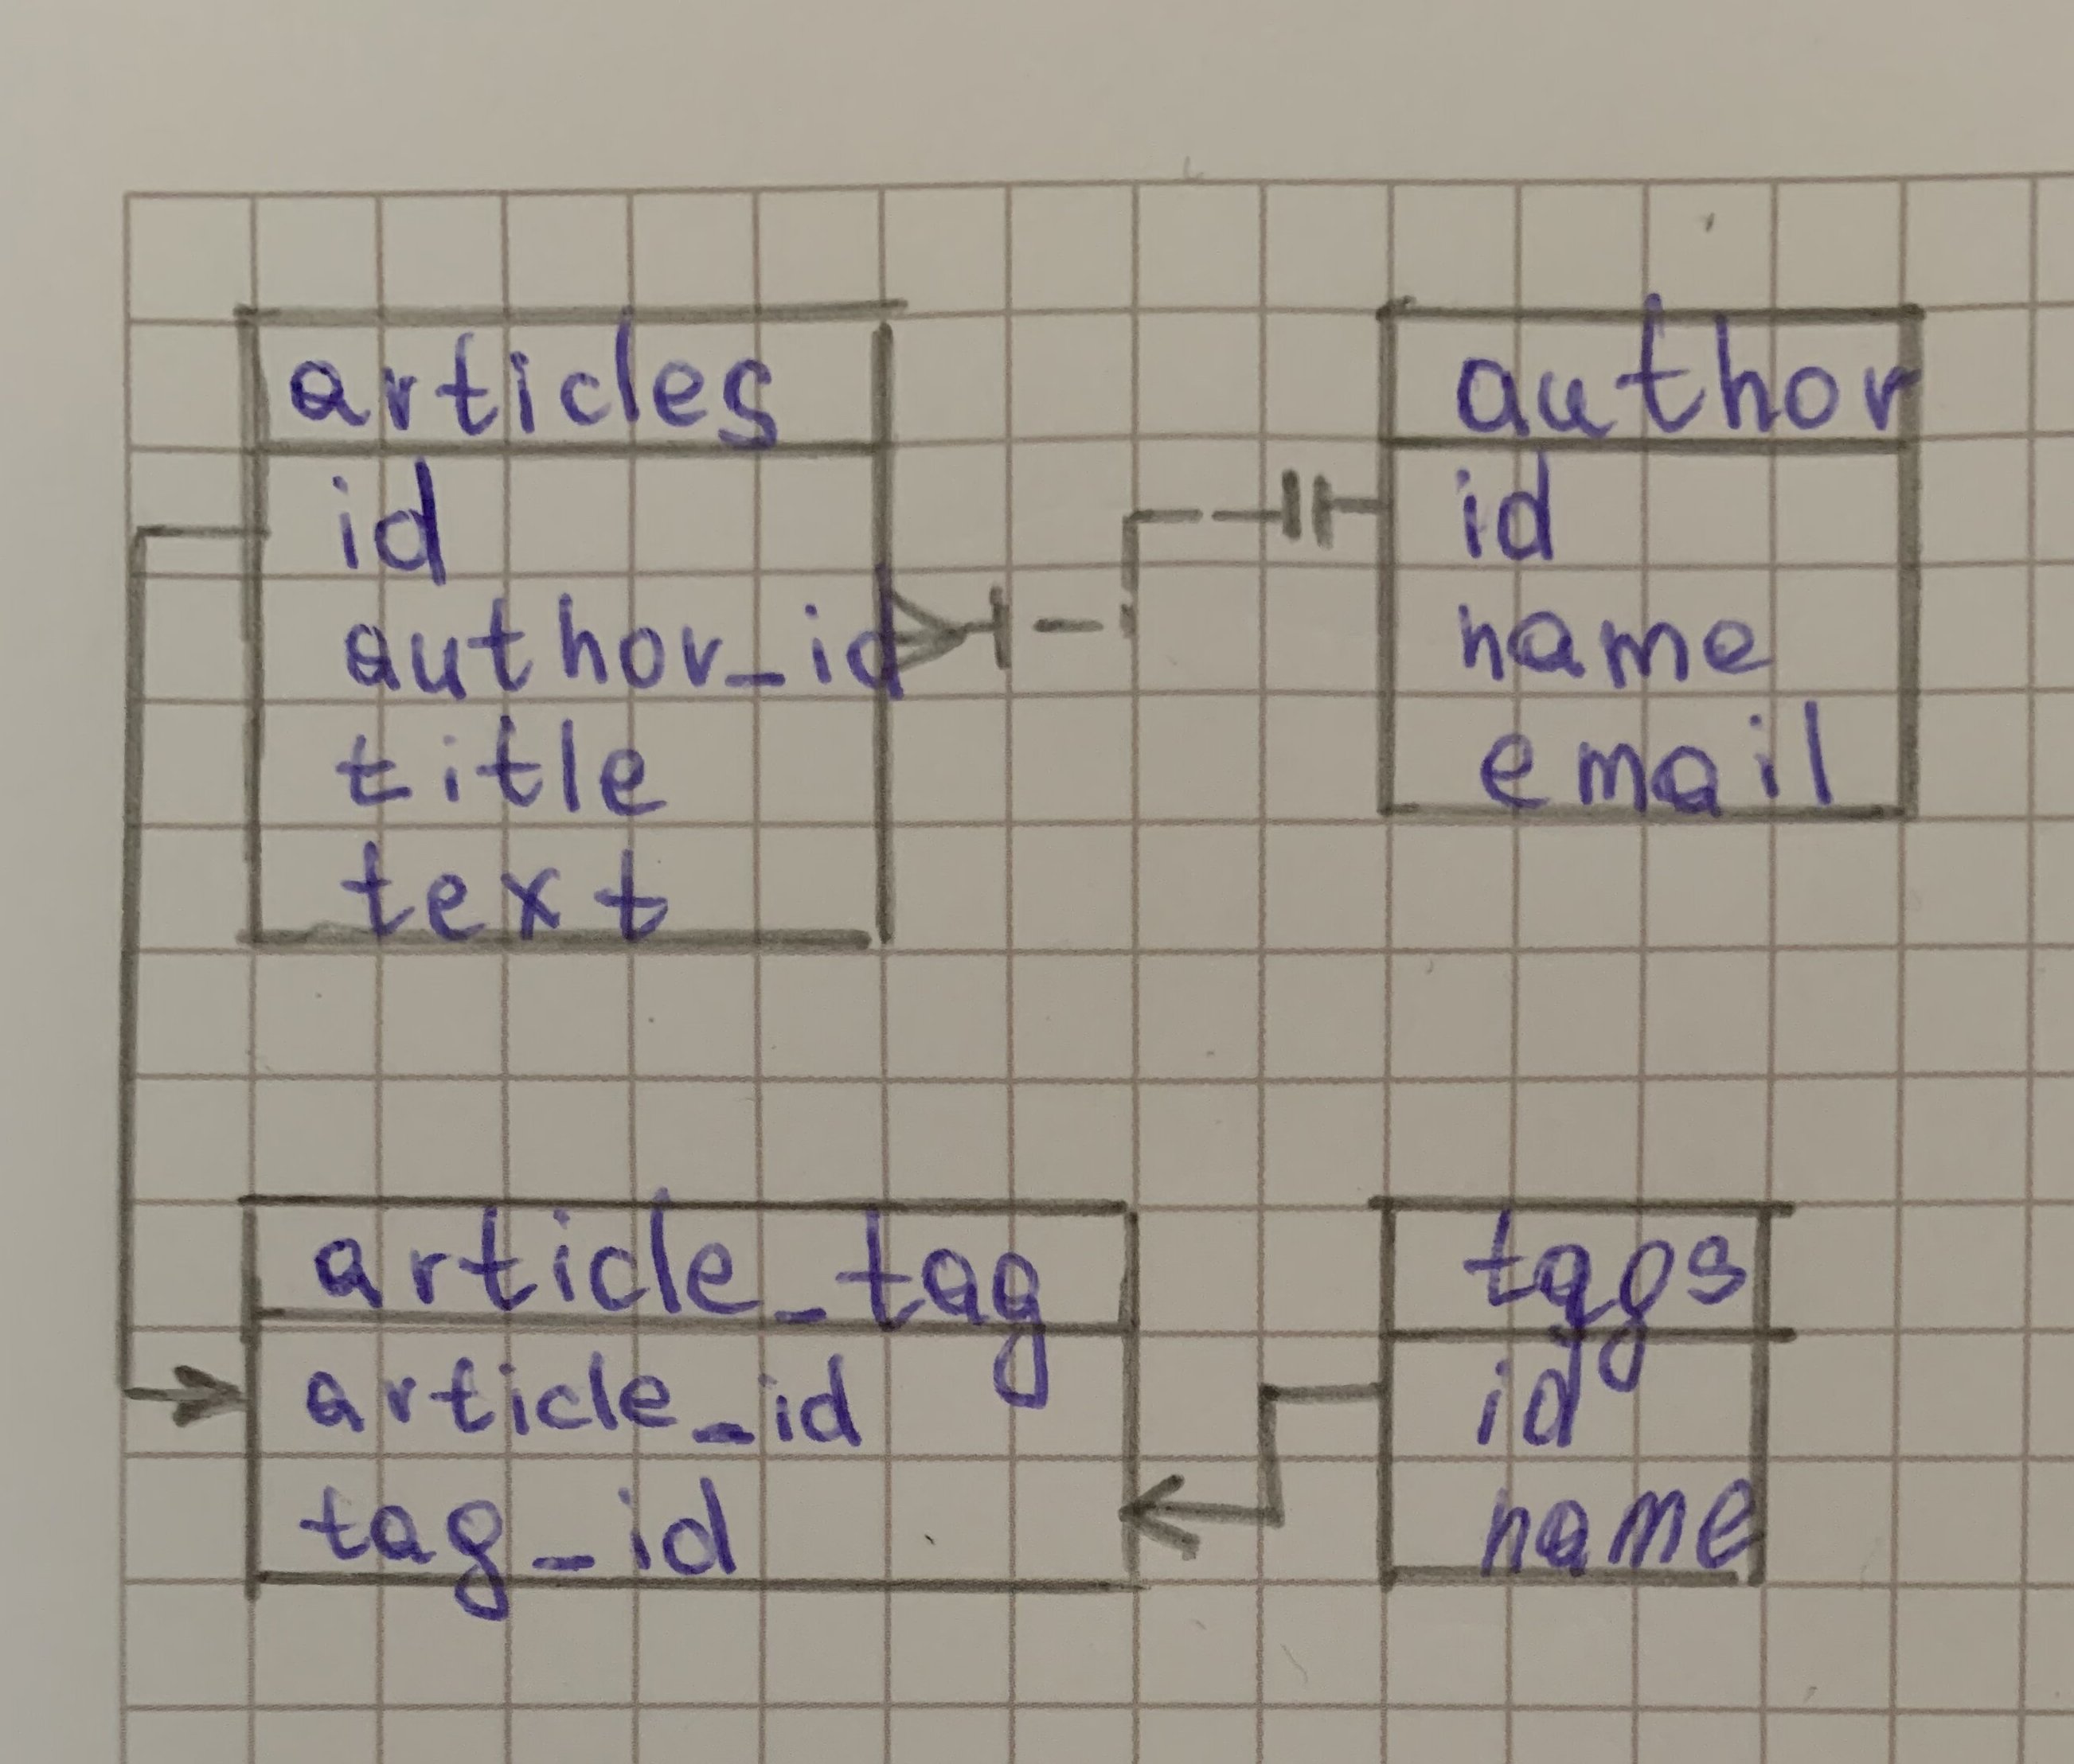 articles
id
author_id
title
text
author
id
name
email
article_tag
article_id
tag_id
tags
id
name